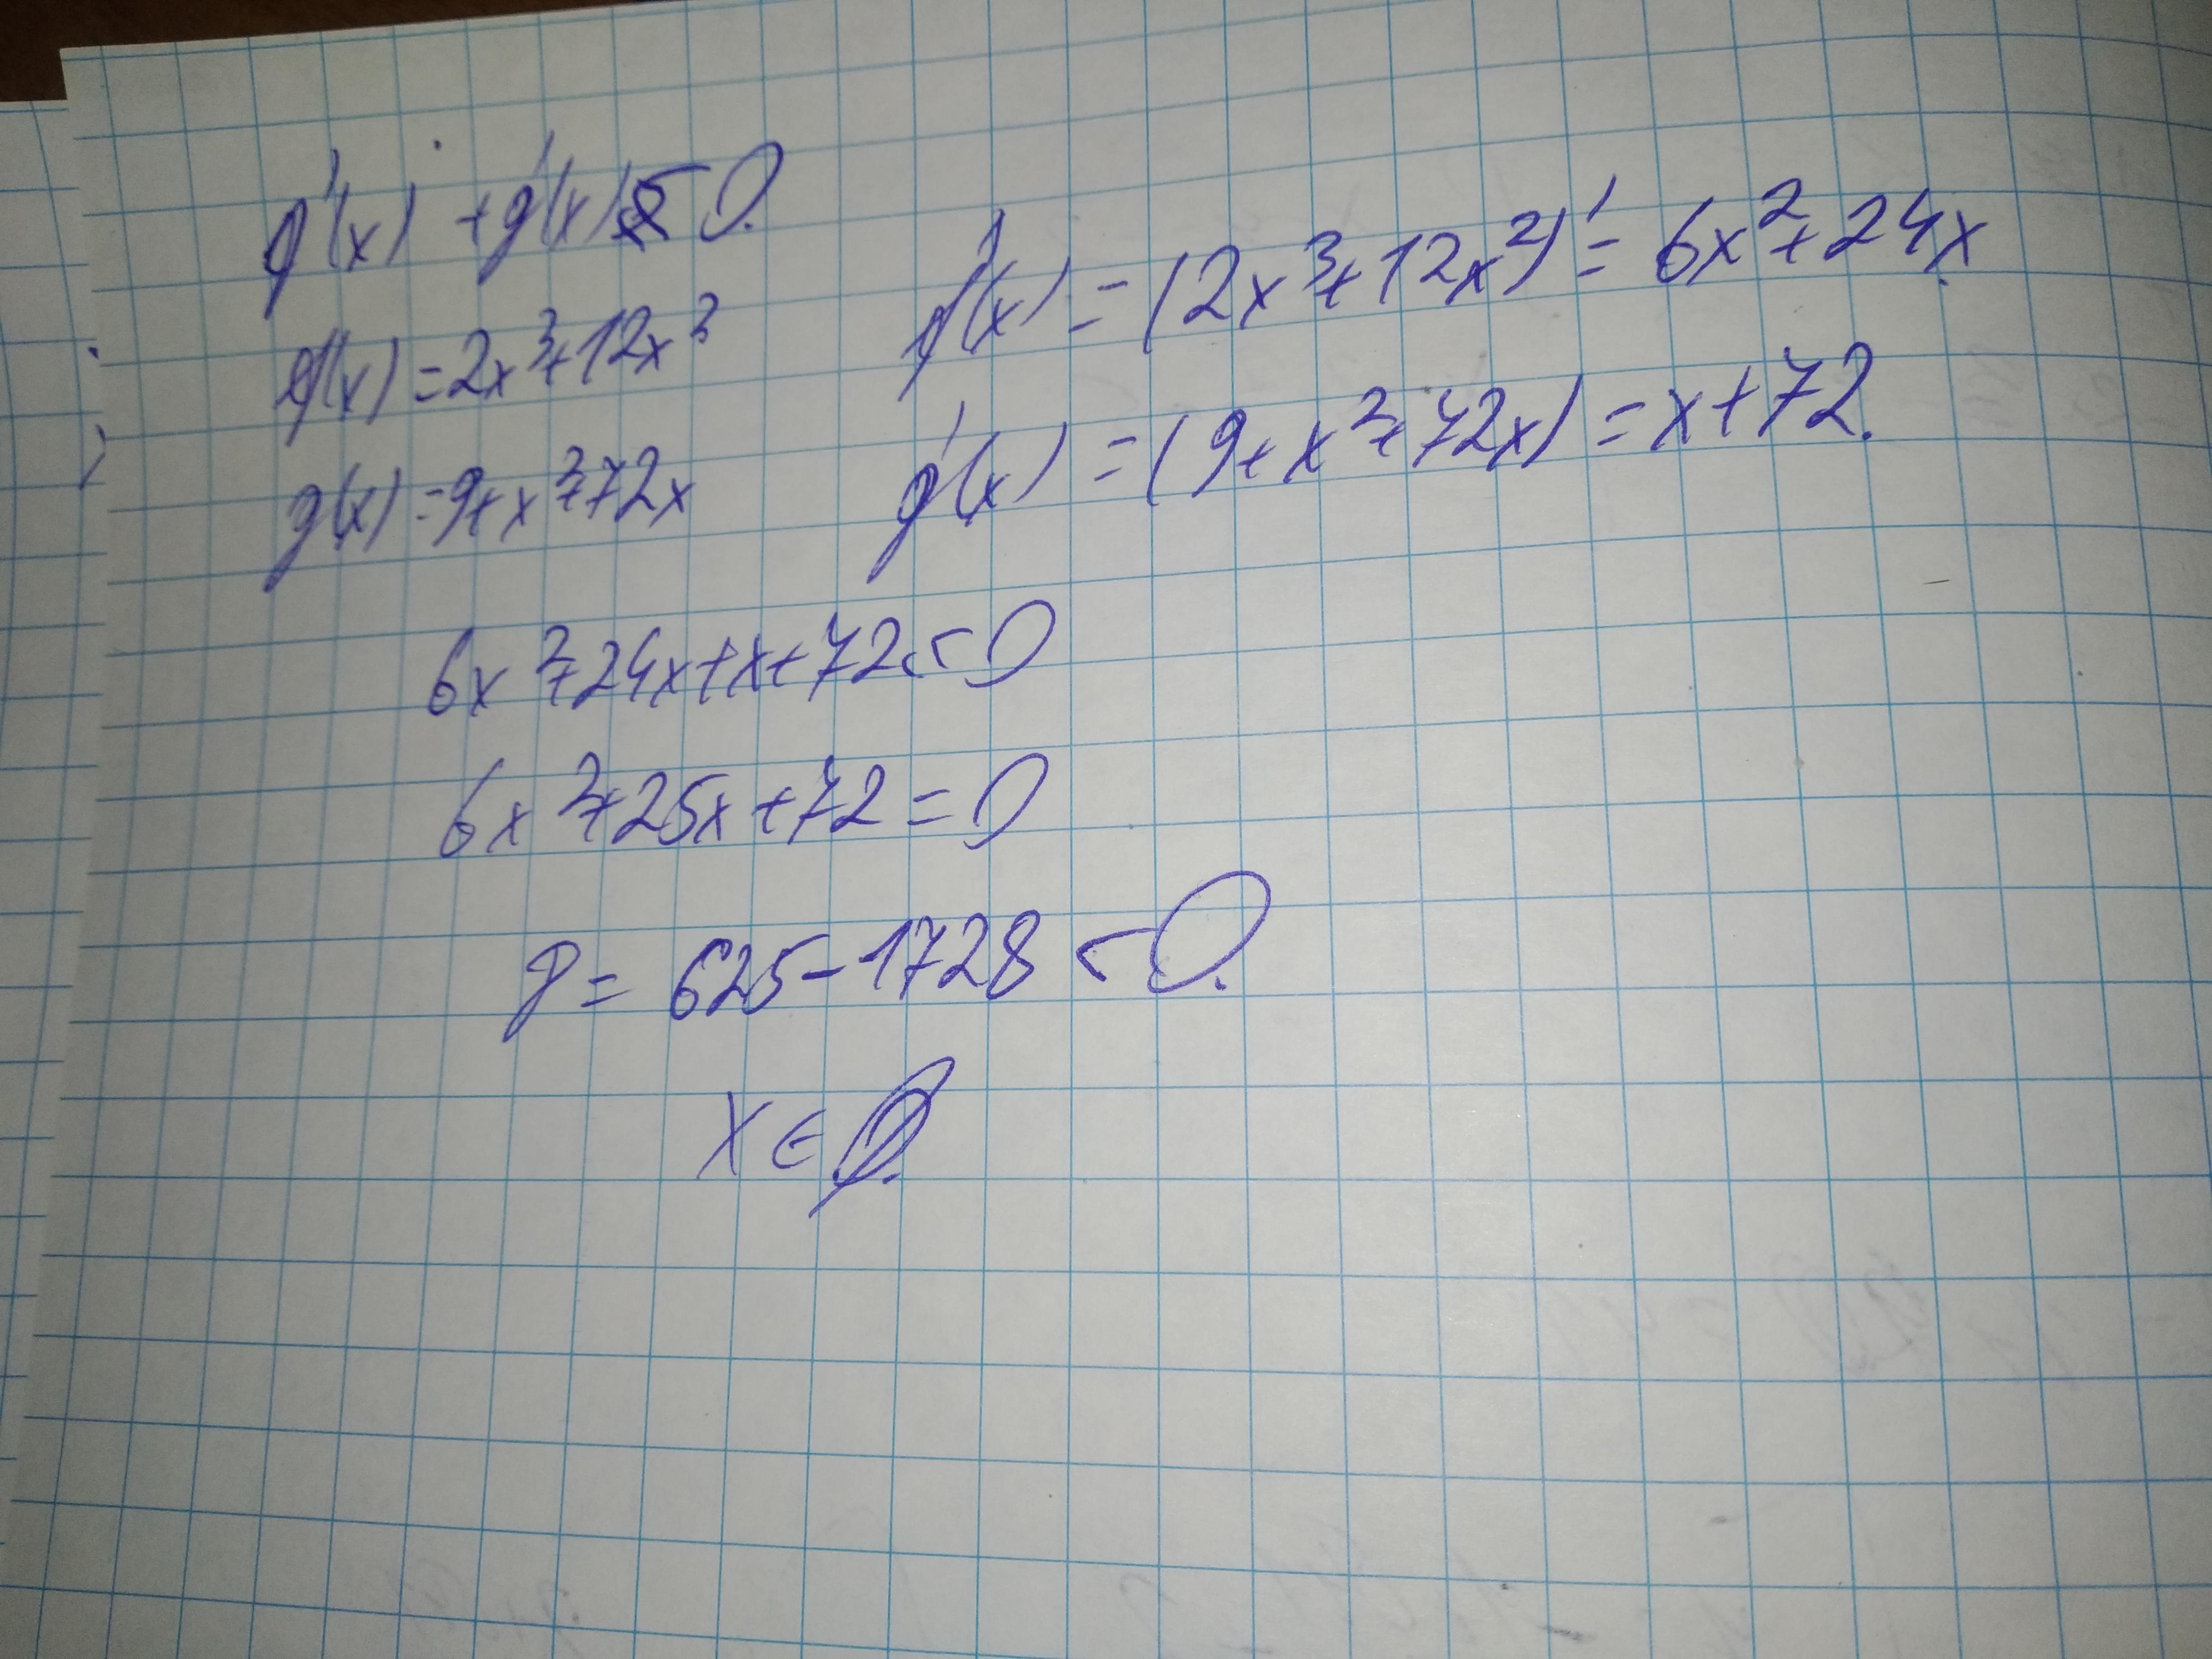 φ'(x) + g'(x) < 0.
φ(x) = 2x³ + 12x²
g(x) = 9 + x² + 72x
φ'(x) = (2x³ + 12x²)' = 6x² + 24x
g'(x) = (9 + x² + 72x) = x + 72.
6x² + 24x + x + 72 < 0
6x² + 25x + 72 = 0
D = 625 - 1728 < 0.
x ∈ ∅.